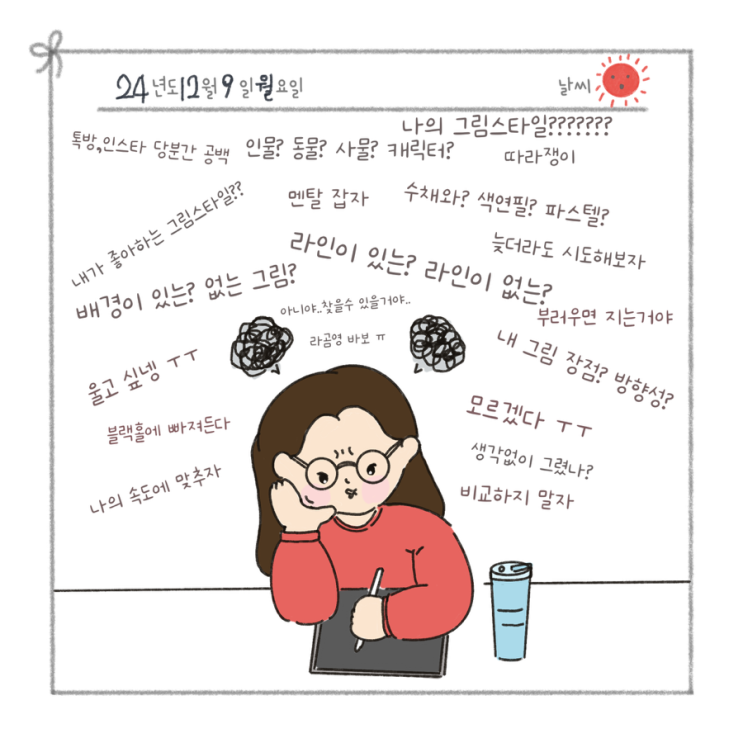 24년도12월9일월요일
날씨
나의 그림스타일???????
톡방,인스타 당분간 공백
인물? 동물? 사물? 캐릭터?
따라쟁이
내가 좋아하는 그림스타일??
멘탈 잡자
수채와? 색연필? 파스텔?
늦더라도 시도해보자
라인이 있는? 라인이 없는?
배경이 있는? 없는 그림?
아니야..찾을수 있을거야..
부러우면 지는거야
라곰영 바보 ㅠ
내 그림 장점? 방향성?
울고 싶넹 ㅜㅜ
모르겠다 ㅜㅜ
블랙홀에 빠져든다
생각없이 그렸나?
나의 속도에 맞추자
비교하지 말자